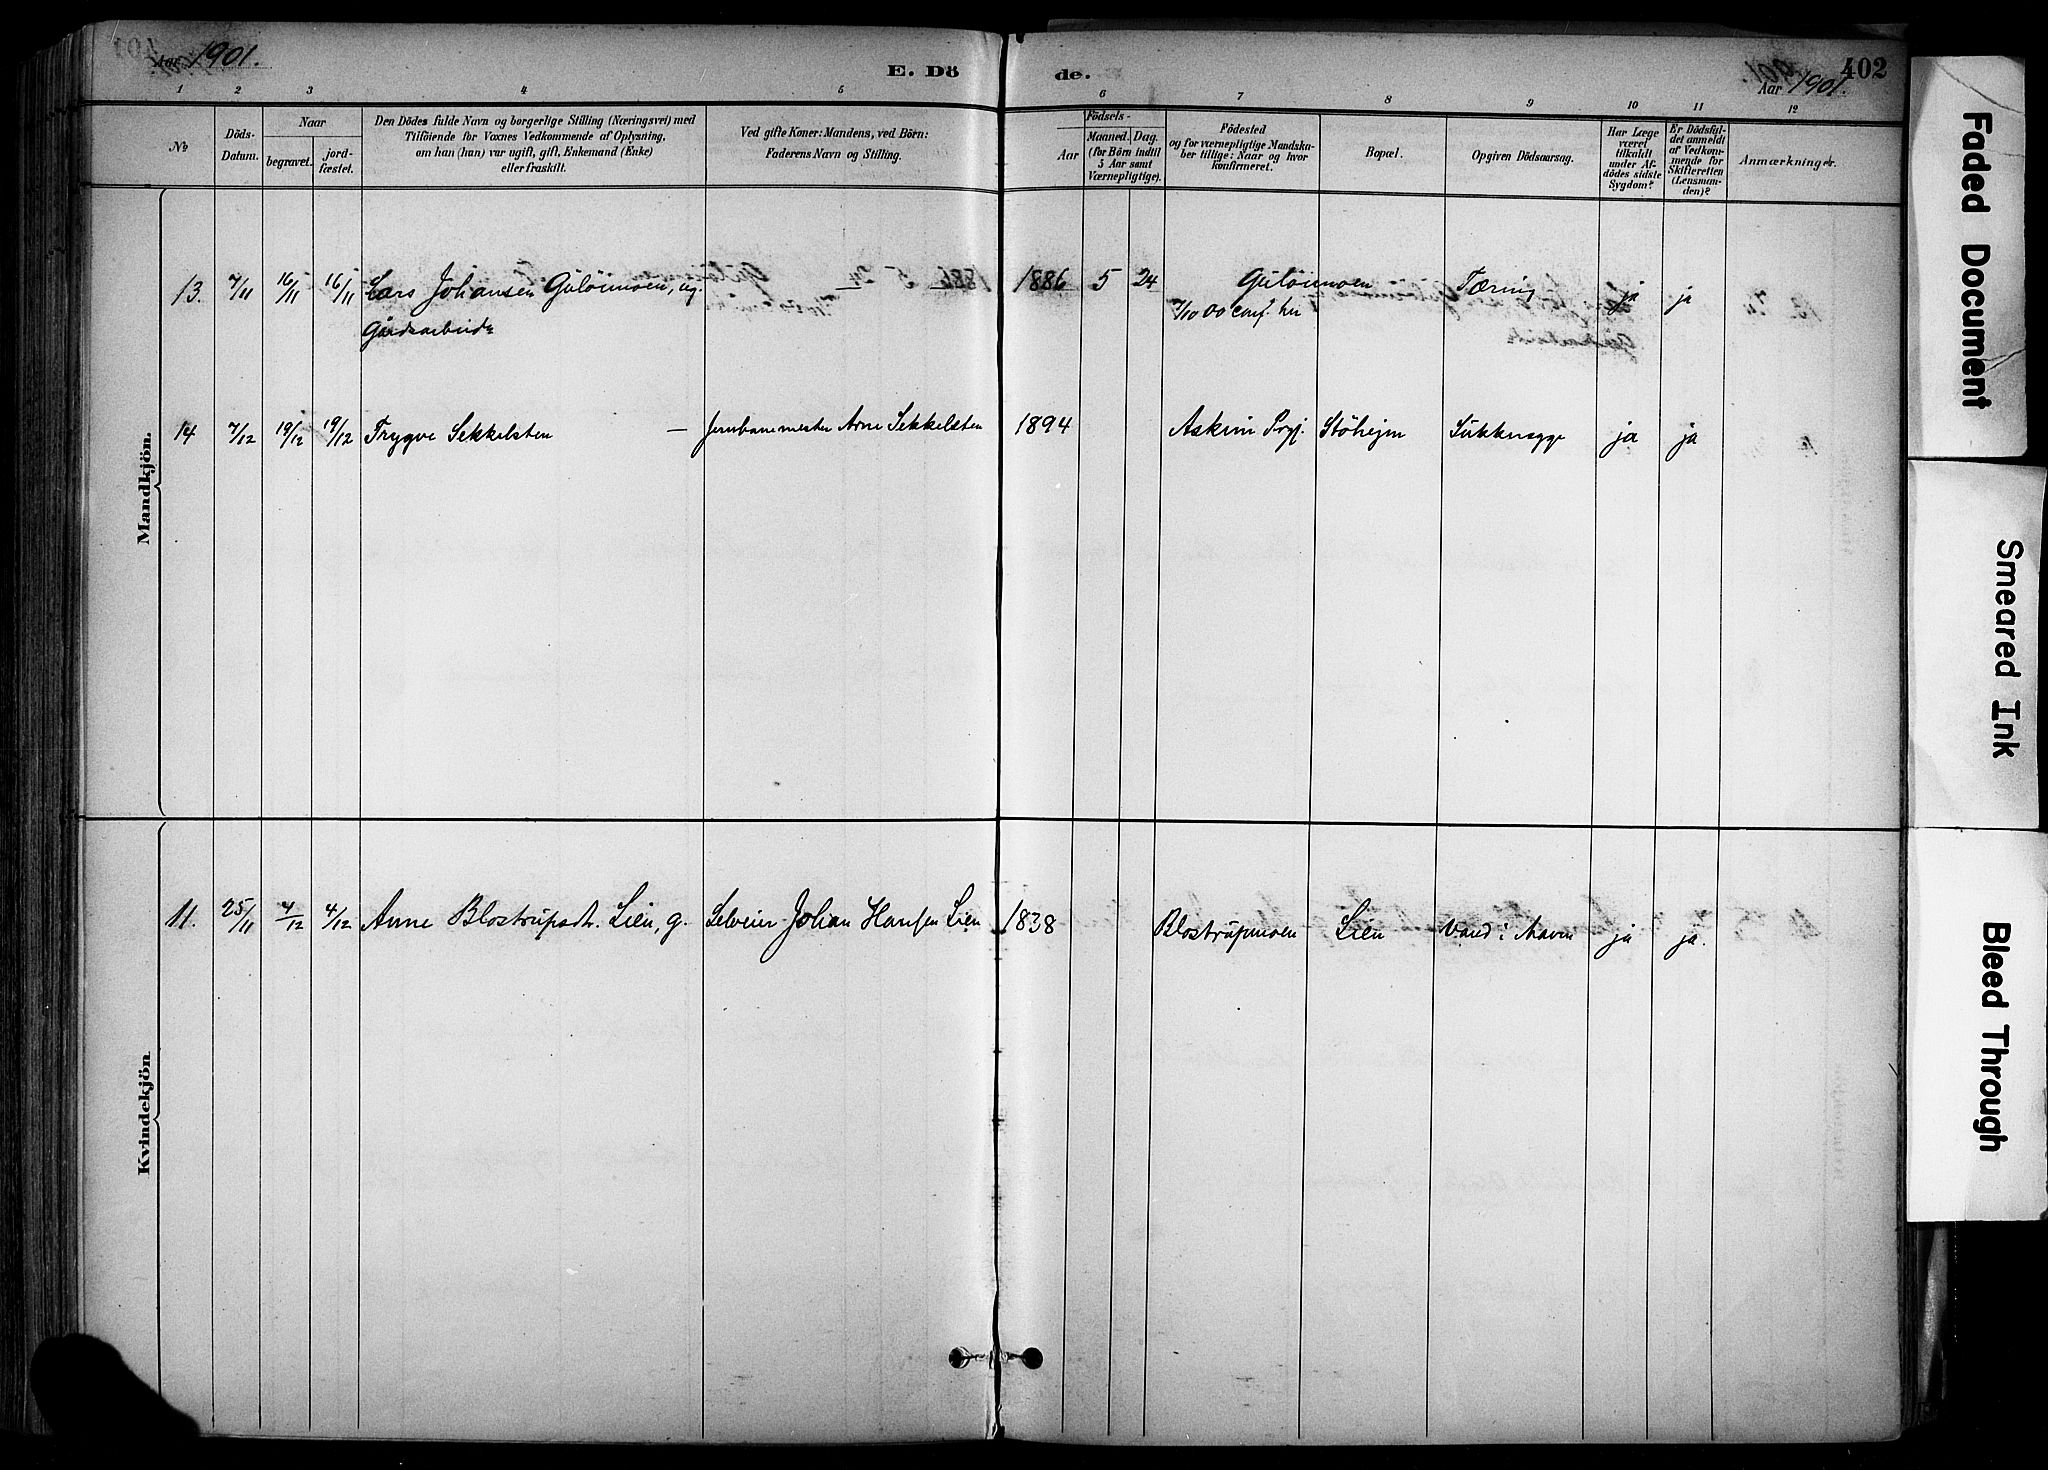 Aar 1901.
E. Dö
de.
402
Aar 1901.
1 2 3 4 5 6 7 8 9 10 11 12
№
Döds-
Datum.
Naar
begravet.
jord-
fæstet.
Den Dödes fulde Navn og borgerlige Stilling (Næringsvei) med
Tilföiende for Voxnes Vedkommende af Oplysning,
om han (hun) var ugift, gift, Enkemand (Enke)
eller fraskilt.
Ved gifte Koner: Mandens, ved Börn:
Faderens Navn og Stilling.
Födsels-
Aar
Maaned. Dag.
(for Börn indtil
5 Aar samt
Værnepligtige).
Födested
og for værnepligtige Mandska-
ber tillige: Naar og hvor
konfirmeret.
Bopæl.
Opgiven Dödsaarsag.
Har Læge
været
tilkaldt
under Af-
dödes sidste
Sygdom?
Er Dödsfal-
det anmeldt
af Vedkom-
mende for
Skifteretten
(Lensman-
den)?
Anmærkninger.
Mandkjön.
13. 7/11 16/11 16/11 Lars Johansen Gulöimoen, ug. — — 1886 5 24 Gulöimoen Tæring ja ja
Gårdsarbeider 1/10 00 conf. her
14 7/12 19/12 19/12 Trygve Sekkelsten — Jernbanemester Arne Sekkelsten 1894 Askim Prgj. Stöhejm Sukkersyge ja ja
Kvindekjön.
11. 25/11 4/12 4/12 Anne Blostrupsdt. Lien, g. Selveier Johan Hansen Lien 1838 Blostrupmoen Lien Vand i Maven ja ja.
Faded Document
Smeared Ink
Bleed Through